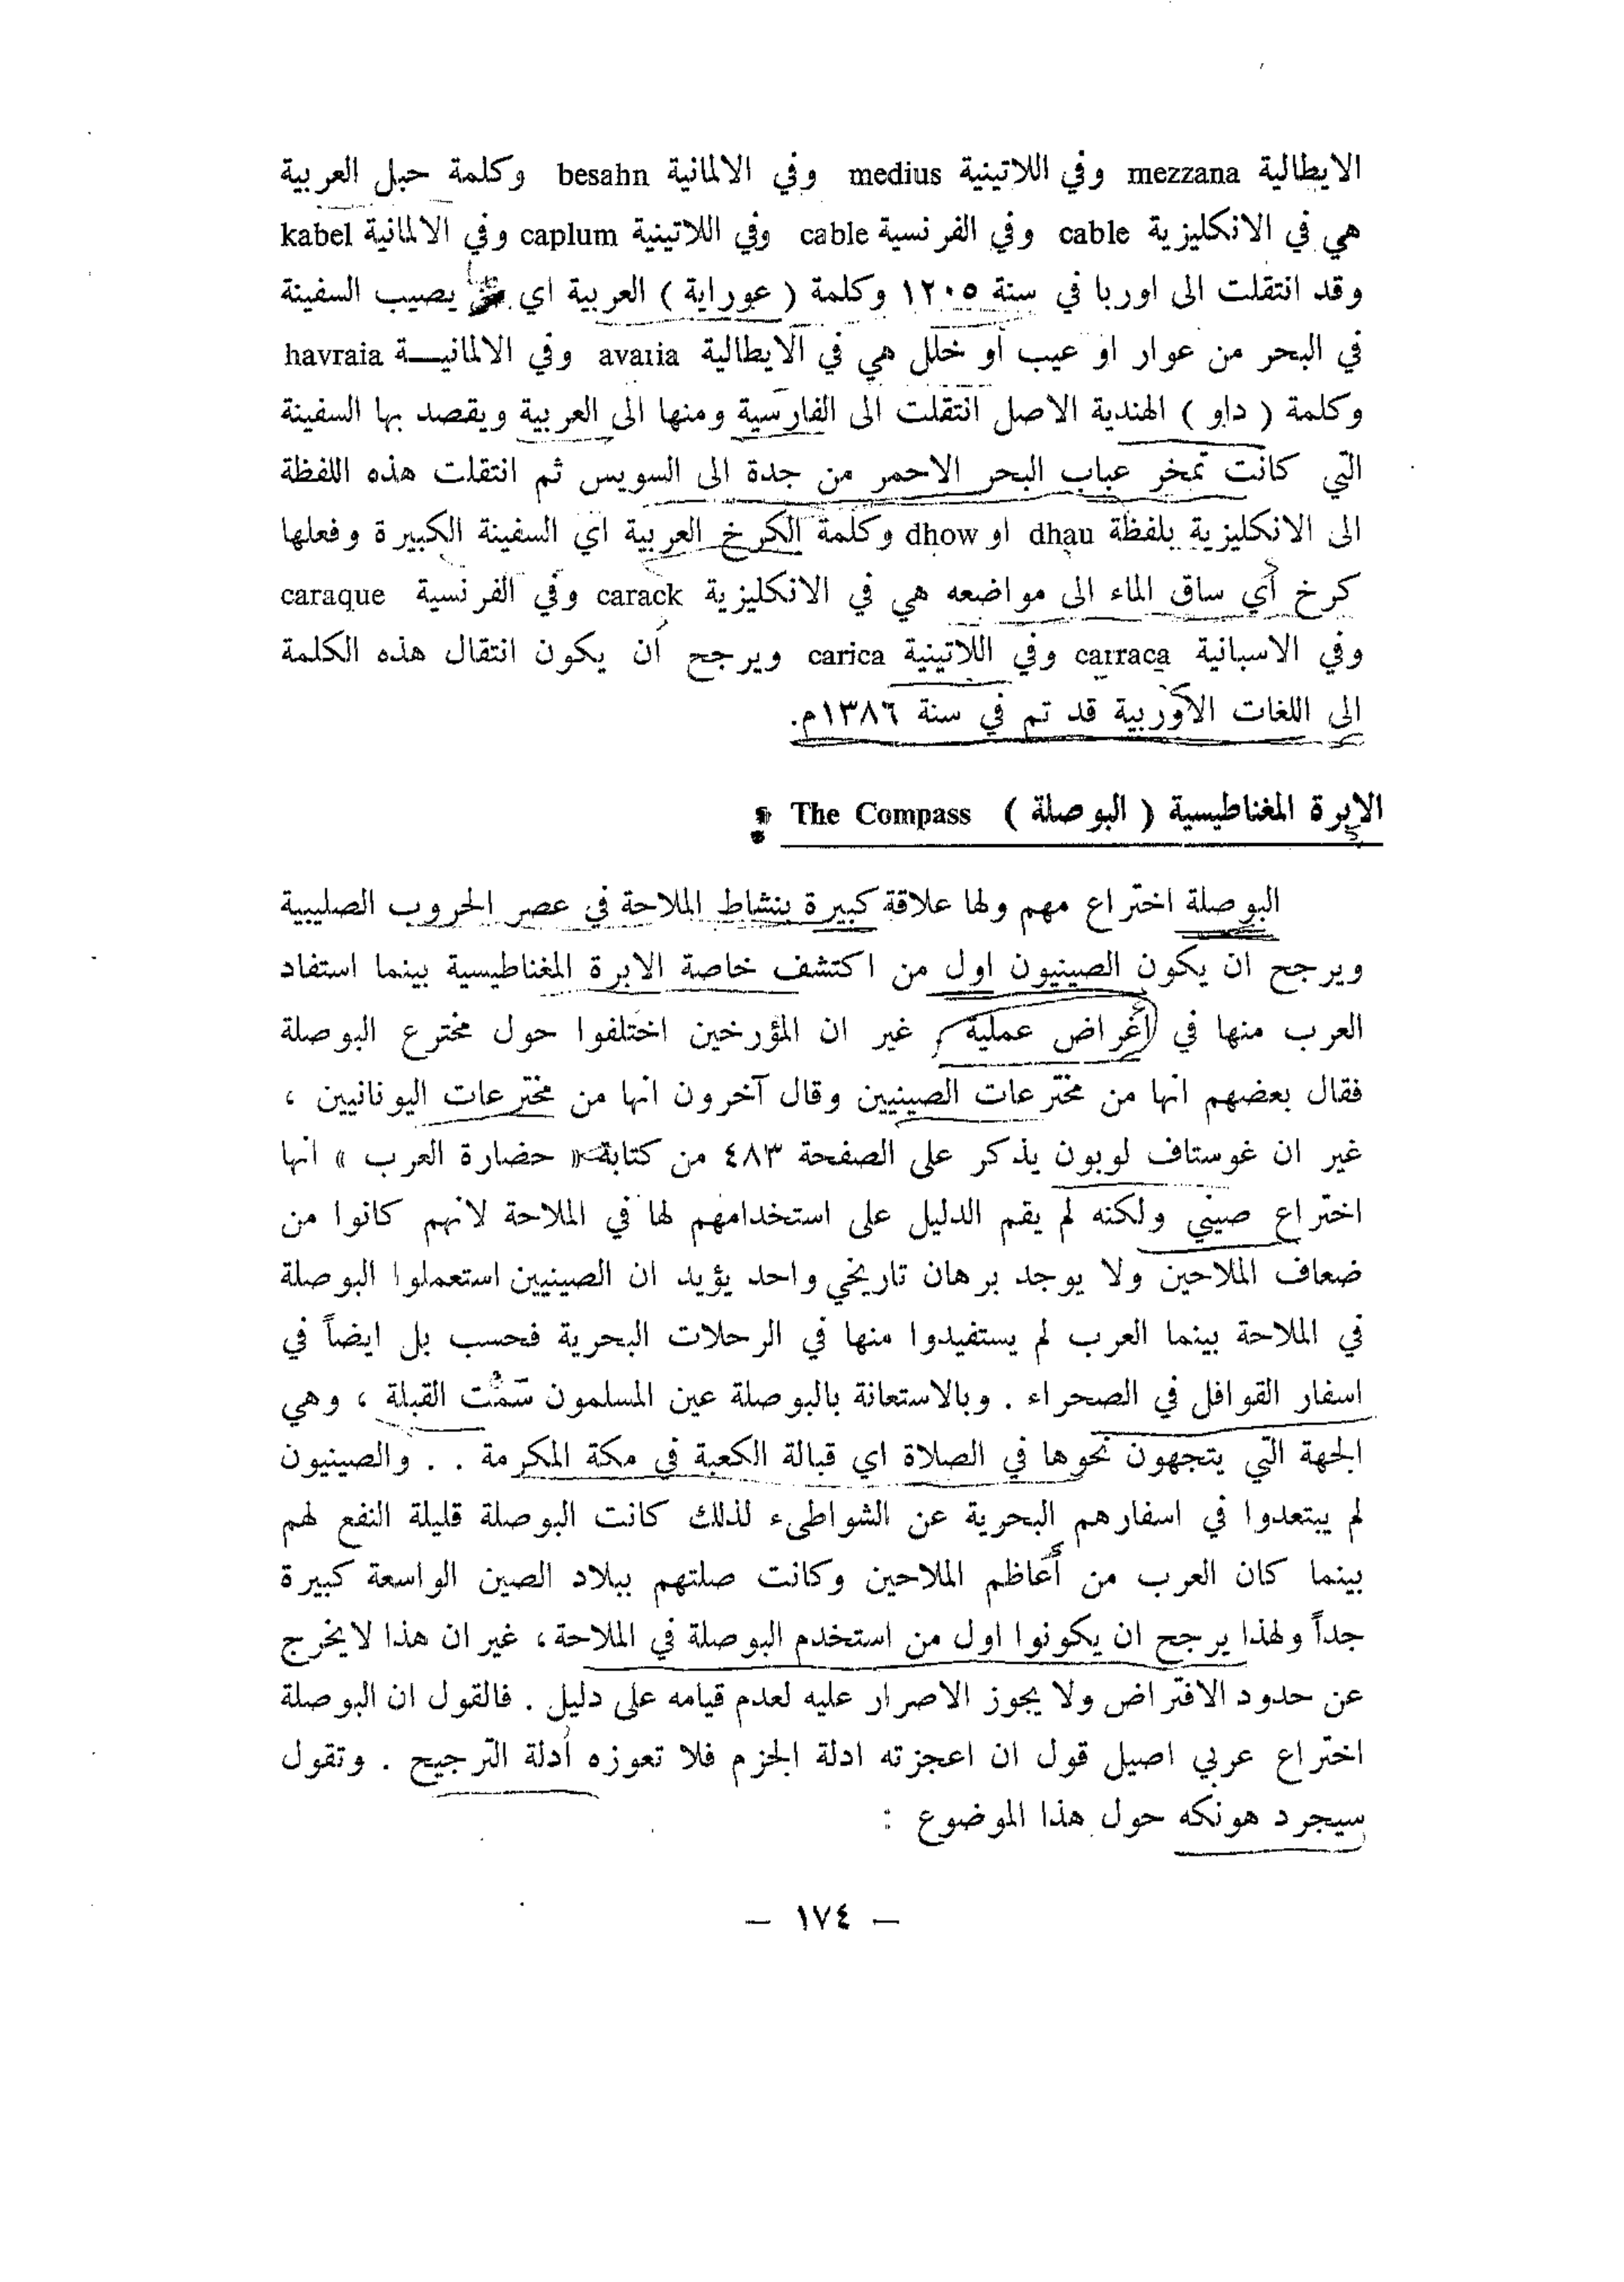 الايطالية mezzana وفي اللاتينية medius وفي الالمانية besahn وكلمة حبل العربية
هي في الانكليزية cable وفي الفرنسية cable وفي اللاتينية caplum وفي الالمانية kabel
وقد انتقلت الى اوربا في سنة ١٢٠٥ وكلمة ( عوراية ) العربية اي يصيب السفينة
في البحر من عوار او عيب أو خلل هي في الايطالية avaria وفي الالمانيـــة havraia
وكلمة ( داو ) الهندية الاصل انتقلت الى الفارسية ومنها الى العربية ويقصد بها السفينة
التي كانت تمخر عباب البحر الاحمر من جدة الى السويس ثم انتقلت هذه اللفظة
الى الانكليزية بلفظة dhau او dhow وكلمة الكرخ العربية اي السفينة الكبيرة وفعلها
كرخ أي ساق الماء الى مواضعه هي في الانكليزية carack وفي الفرنسية caraque
وفي الاسبانية carraca وفي اللاتينية carica ويرجح أن يكون انتقال هذه الكلمة
الى اللغات الأوربية قد تم في سنة ١٣٨٦م.
الابرة المغناطيسية ( البوصلة ) The Compass :
البوصلة اختراع مهم ولها علاقة كبيرة بنشاط الملاحة في عصر الحروب الصليبية
ويرجح ان يكون الصينيون اول من اكتشف خاصة الابرة المغناطيسية بينما استفاد
العرب منها في أغراض عملية ، غير ان المؤرخين اختلفوا حول مخترع البوصلة
فقال بعضهم انها من مخترعات الصينيين وقال آخرون انها من مخترعات اليونانيين ،
غير ان غوستاف لوبون يذكر على الصفحة ٤٨٣ من كتابة « حضارة العرب » انها
اختراع صيني ولكنه لم يقم الدليل على استخدامهم لها في الملاحة لانهم كانوا من
ضعاف الملاحين ولا يوجد برهان تاريخي واحد يؤيد ان الصينيين استعملوا البوصلة
في الملاحة بينما العرب لم يستفيدوا منها في الرحلات البحرية فحسب بل ايضاً في
اسفار القوافل في الصحراء . وبالاستعانة بالبوصلة عين المسلمون سَمْت القبلة ، وهي
الجهة التي يتجهون نحوها في الصلاة اي قبالة الكعبة في مكة المكرمة . . والصينيون
لم يبتعدوا في اسفارهم البحرية عن الشواطىء لذلك كانت البوصلة قليلة النفع لهم
بينما كان العرب من أعاظم الملاحين وكانت صلتهم ببلاد الصين الواسعة كبيرة
جداً ولهذا يرجح ان يكونوا اول من استخدم البوصلة في الملاحة ، غير ان هذا لايخرج
عن حدود الافتراض ولا يجوز الاصرار عليه لعدم قيامه على دليل . فالقول ان البوصلة
اختراع عربي اصيل قول ان اعجزته ادلة الجزم فلا تعوزه أدلة الترجيح . وتقول
سيجرد هونكه حول هذا الموضوع :
– ١٧٤ –